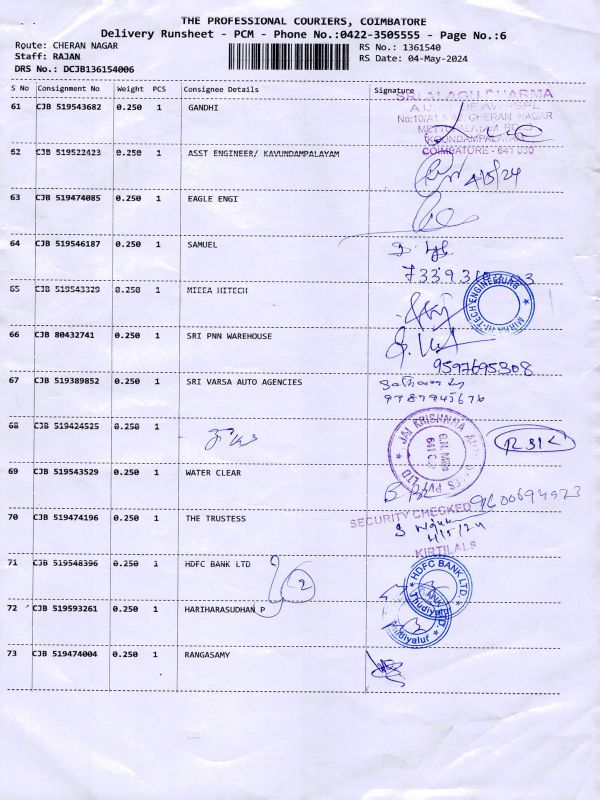 THE PROFESSIONAL COURIERS, COIMBATORE
Delivery Runsheet - PCM - Phone No.:0422-3505555 - Page No.:6
Route: CHERAN NAGAR
RS No.: 1361540
Staff: RAJAN
RS Date: 04-May-2024
DRS No.: DCJB136154006
S No Consignment No Weight PCS Consignee Details Signature
61 CJB 519543682 0.250 1 GANDHI
CHERAN NAGAR
COIMBATORE
62 CJB 519522423 0.250 1 ASST ENGINEER/ KAVUNDAMPALAYAM
4/5/24
63 CJB 519474085 0.250 1 EAGLE ENGI
64 CJB 519546187 0.250 1 SAMUEL
65 CJB 519543329 0.250 1 MIEEA HITECH
HI-TECH ENGINEERING
66 CJB 80432741 0.250 1 SRI PNN WAREHOUSE
9597695308
67 CJB 519389852 0.250 1 SRI VARSA AUTO AGENCIES
68 CJB 519424525 0.250 1
JAI KRISHNAA PVT LTD
69 CJB 519543529 0.250 1 WATER CLEAR
70 CJB 519474196 0.250 1 THE TRUSTESS
SECURITY CHECKED
KIRTILALS
71 CJB 519548396 0.250 1 HDFC BANK LTD
2
HDFC BANK LTD.
Thudiyalur
72 CJB 519593261 0.250 1 HARIHARASUDHAN P
73 CJB 519474004 0.250 1 RANGASAMY